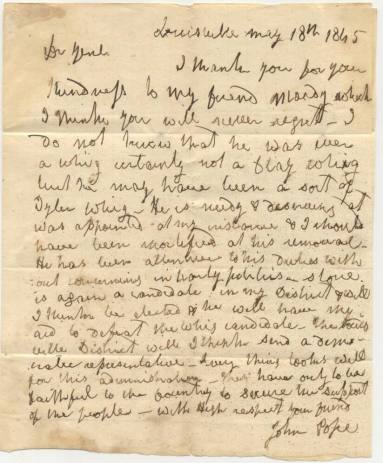 Louisville May 18th 1845
Dr Genl. I thank you for your
kindness to my friend which
I think you will never regret - I
do not know that he was ever
a whig certainly not a Clay whig
but he may have been a sort of
Tyler whig - He is needy & deserving
was appointed at my instance & I should
have been mortified at his removal -
He has been attentive to his duties with
out concerning in party politics - Stone
is again a candidate in my District &
I think be elected & he will have my
aid to defeat the whig candidate - The Louis
ville District will I think send a demo
cratic representative - Every thing looks well
for this administration - They have only to be
faithful to the country to secure the support
of the people - with high respect your friend
John Pope